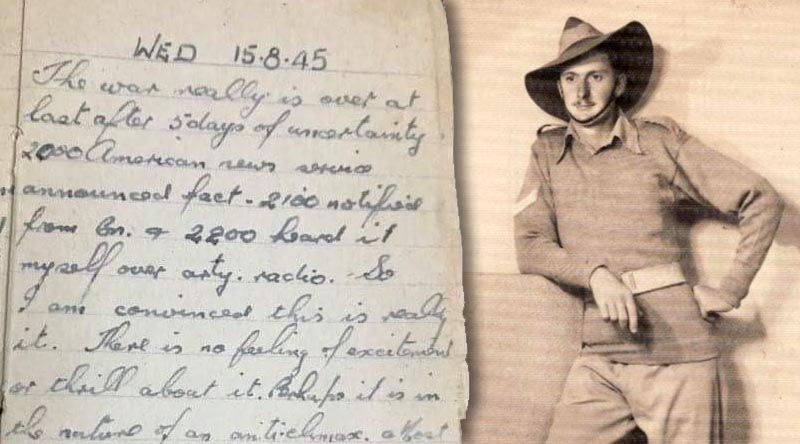 WED 15.8.45
The war really is over at
last after 5 days of uncertainty
2000 American news service
announced fact - 2100 notified
from Bn. & 2200 heard it
myself over arty. radio. - So
I am convinced this is really
it. There is no feeling of excitement
or thrill about it. Perhaps it is in
the nature of an anti-climax. about